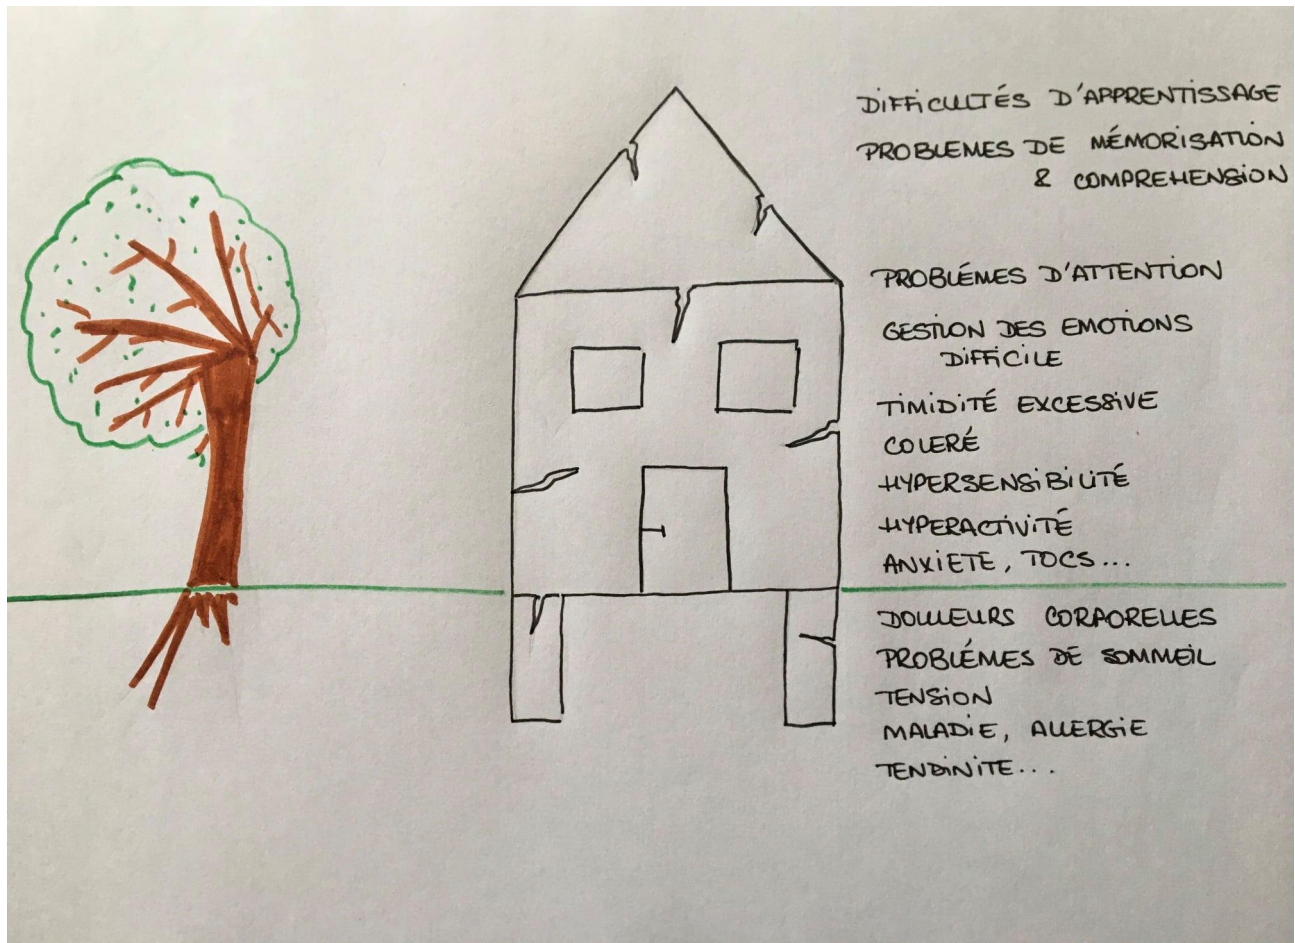 DIFFICULTÉS D'APPRENTISSAGE
PROBLEMES DE MÉMORISATION
& COMPREHENSION
PROBLÉMES D'ATTENTION
GESTION DES EMOTIONS
DIFFICILE
TIMIDITÉ EXCESSIVE
COLERÉ
HYPERSENSIBILITÉ
HYPERACTIVITÉ
ANXIETE, TOCS...
DOULEURS CORPORELLES
PROBLÉMES DE SOMMEIL
TENSION
MALADIE, ALLERGIE
TENDINITE...